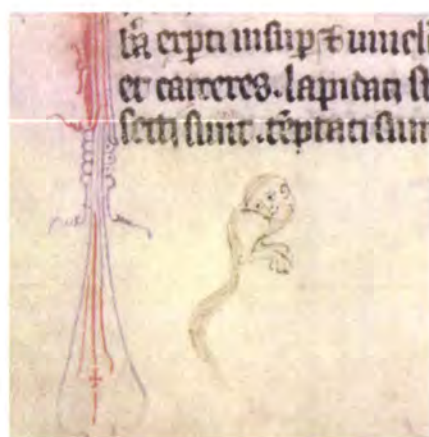 expti insup ⁊ uincl
et carceres. lapidati st
secti sunt. tēptati sun